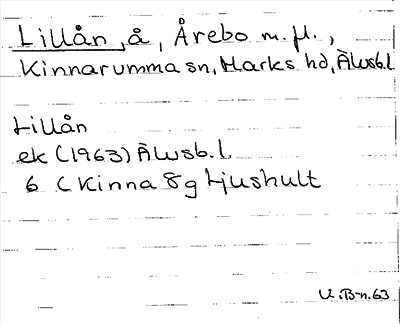 Lillån, å, Årebo m.fl.,
Kinnarumma sn, Marks hd, Älvsb.l.
Lillån
ek (1963) Älvsb.l.
6 C Kinna 8g Ljushult
U.B-n.63